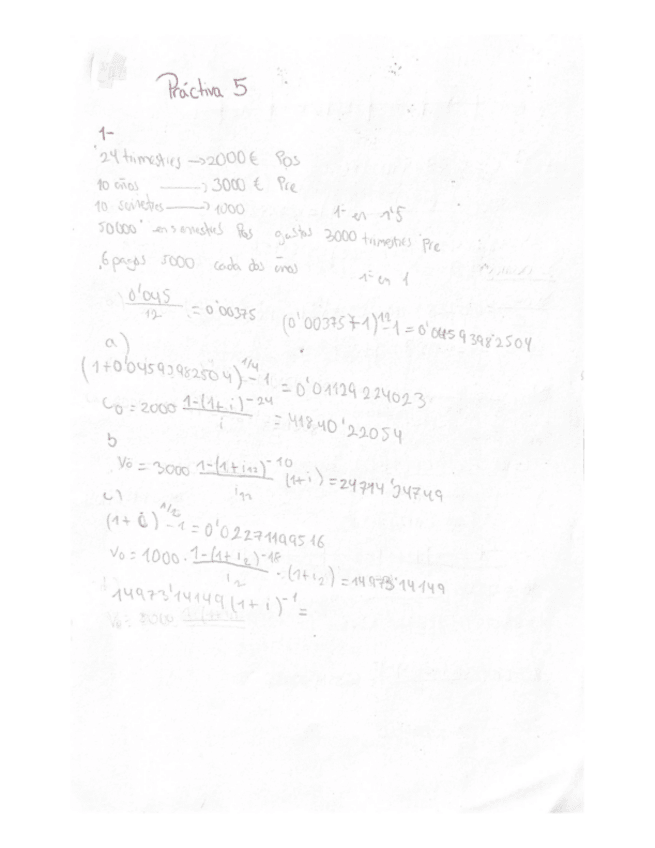 Práctiva 5
1-
24 trimestres → 2000 € Pos
10 años → 3000 € Pre
10 semestres → 1000 1º en 1'5
50000 en semestres Pos gastos 3000 trimestres Pre
6 pagos 5000 cada dos años 1º en 1
0'045 / 12 = 0'00375 (0'00375+1)^12 - 1 = 0'04593982504
a)
(1+0'04593982504)^1/4 - 1 = 0'01129224023
C0 = 2000 1-(1+i)^-24 / i = 41840'22054
b
V0 = 3000 1-(1+i12)^-10 / i12 (1+i) = 24714'34749
c)
(1+i)^1/2 - 1 = 0'02271199516
V0 = 1000 · 1-(1+i2)^-18 / i2 · (1+i2) = 14973'14149
14973'14149 (1+i)^-1 =